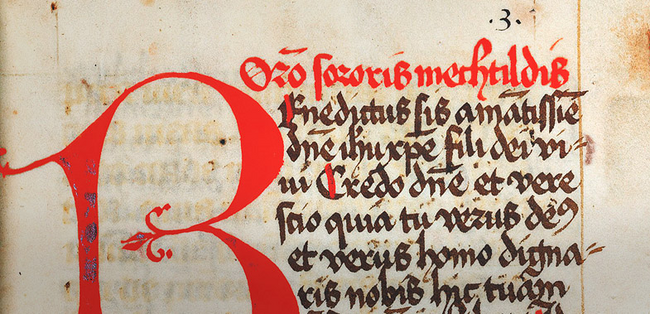 .3.
Orō sororis mechtildis
Benedictus sis amātissīe
dn̄e ihu xp̄e fili dei vi-
ui Credo dn̄e et vere
scio quia tu verus deꝰ
et verus homo digna-
ris nobis hic tuam